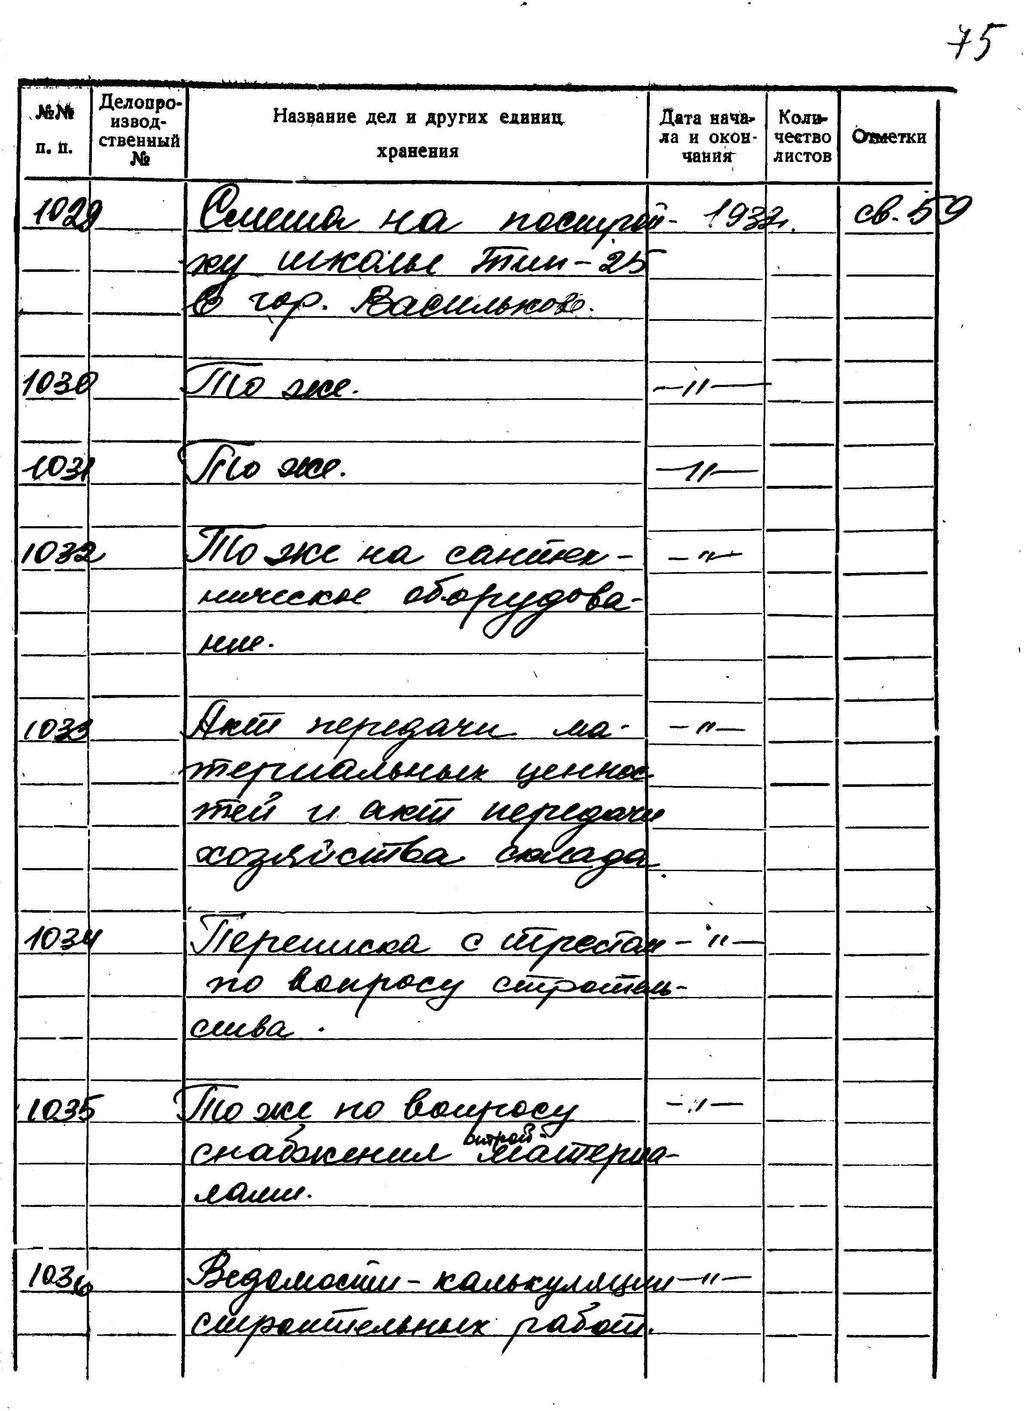 75
№№ п. п. Делопроизводственный № Название дел и других единиц хранения Дата начала и окончания Количество листов Отметки
1029 Смета на построй- 1932г. св. 59
ку школы Тип-25
в гор. Василькове.
1030 То же. -"-
1031 То же. -"-
1032 То же на сантех- -"-
ническое оборудова-
ние.
1033 Акт передачи ма- -"-
териальных ценнос-
тей и акт передачи
хозяйства склада.
1034 Переписка с трестом -"-
по вопросу строитель-
ства.
1035 То же по вопросу -"-
снабжения стройматериа-
лами.
1036 Ведомости-калькуляции -"-
строительных работ.